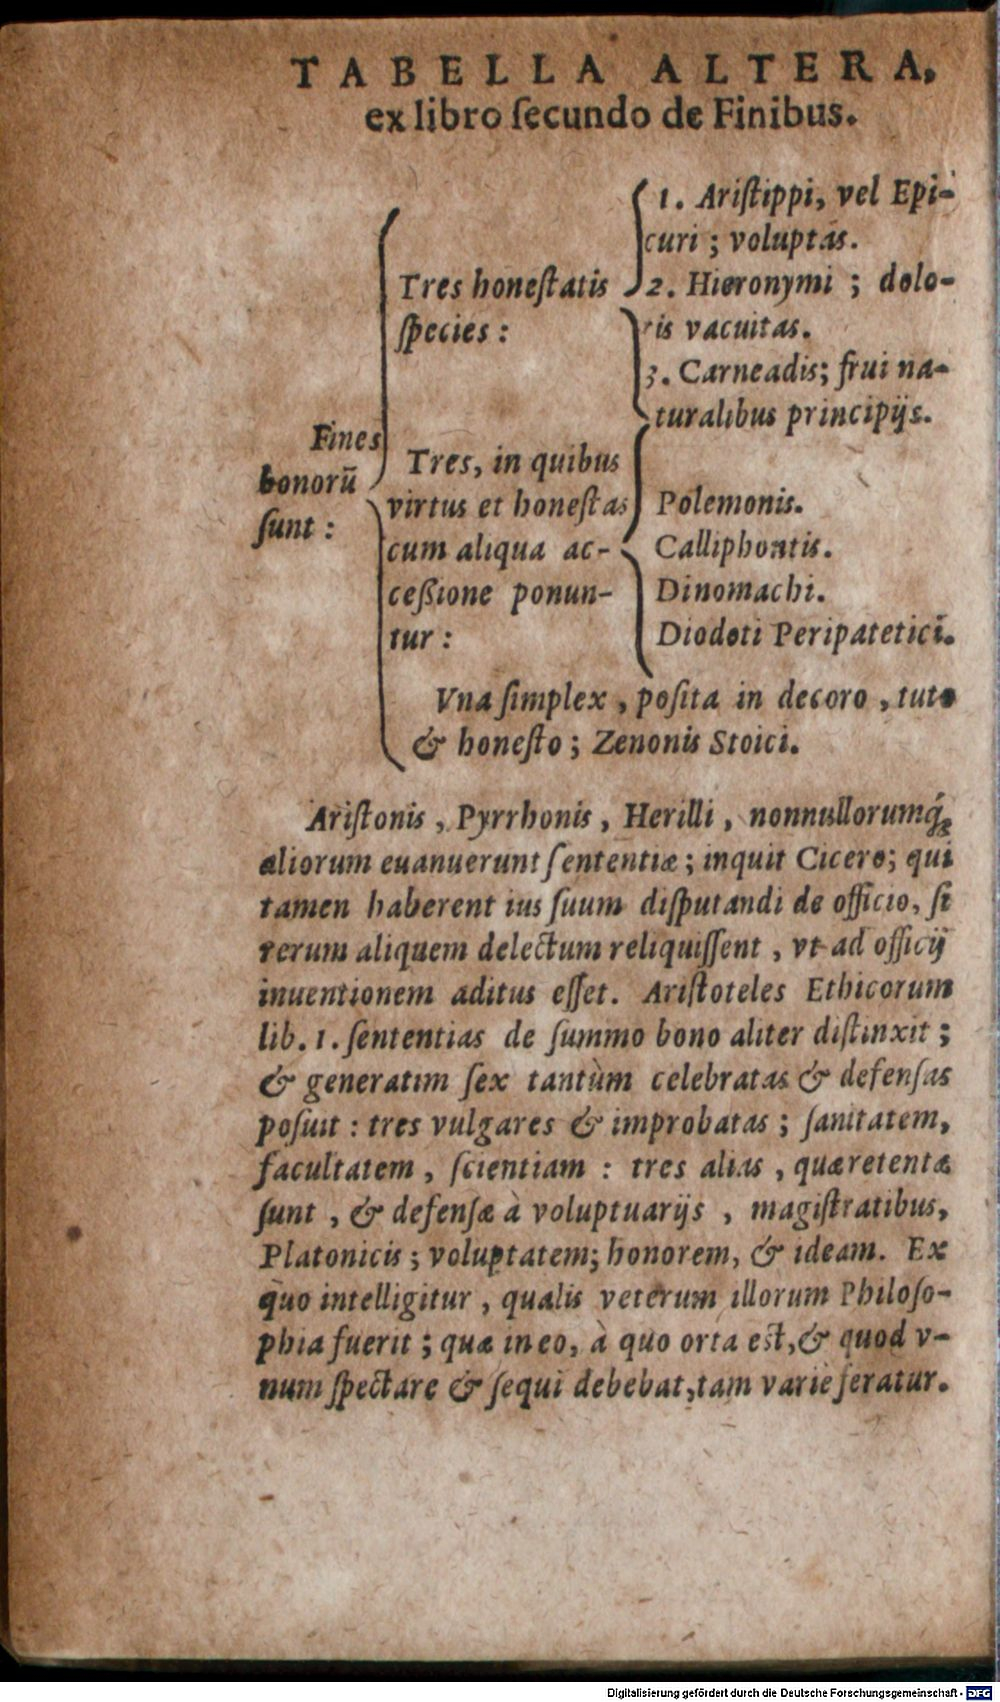 TABELLA ALTERA,
ex libro ſecundo de Finibus.
Fines
bonorū
ſunt :
Tres honeſtatis
ſpecies :
1. Ariſtippi, vel Epi-
curi ; voluptas.
2. Hieronymi ; dolo-
ris vacuitas.
3. Carneadis; frui na-
turalibus principijs.
Tres, in quibus
virtus et honeſtas
cum aliqua ac-
ceßione ponun-
tur :
Polemonis.
Calliphontis.
Dinomachi.
Diodoti Peripatetici.
Vna ſimplex , poſita in decoro , tuto
& honeſto ; Zenonis Stoici.
Ariſtonis , Pyrrhonis , Herilli , nonnullorumq́;
aliorum euanuerunt ſententiæ ; inquit Cicero; qui
tamen haberent ius ſuum diſputandi de officio, ſi
rerum aliquem delectum reliquiſſent , vt ad officij
inuentionem aditus eſſet. Ariſtoteles Ethicorum
lib. 1. ſententias de ſummo bono aliter diſtinxit ;
& generatim ſex tantùm celebratas & defenſas
poſuit : tres vulgares & improbatas ; ſanitatem,
facultatem , ſcientiam : tres alias , quæ retentæ
ſunt , & defenſæ à voluptuarijs , magiſtratibus,
Platonicis ; voluptatem; honorem, & ideam. Ex
quo intelligitur , qualis veterum illorum Philoſo-
phia fuerit ; quæ in eo, à quo orta eſt,& quod v-
num ſpectare & ſequi debebat,tam variè feratur.
Digitalisierung gefördert durch die Deutsche Forschungsgemeinschaft - DFG